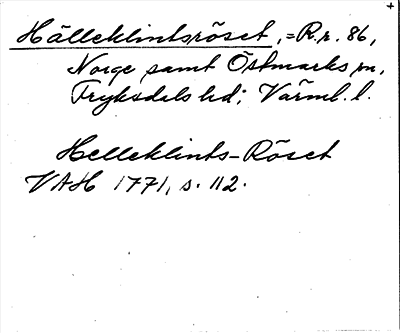 Hälleklintsröset, = R.r. 86,
Norge samt Östmarks sn,
Fryksdals hd; Värml. l.
Helleklints-Röset
VAH 1771, s. 112.